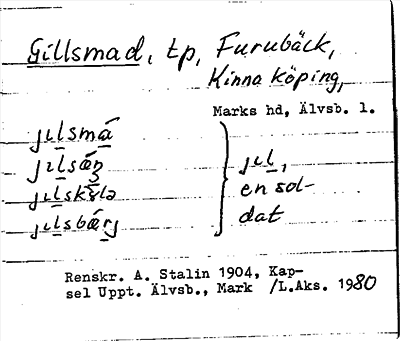 Gillsmad, tp, Furubäck,
Kinna köping,
Marks hd, Älvsb. l.
jɩlsmá
jɩlsáŋ
jɩlskʏ̀lə
jɩlsbárj
} jɩl,
en sol-
dat
Renskr. A. Stalin 1904, Kap-
sel Uppt. Älvsb., Mark /L.Aks. 1980